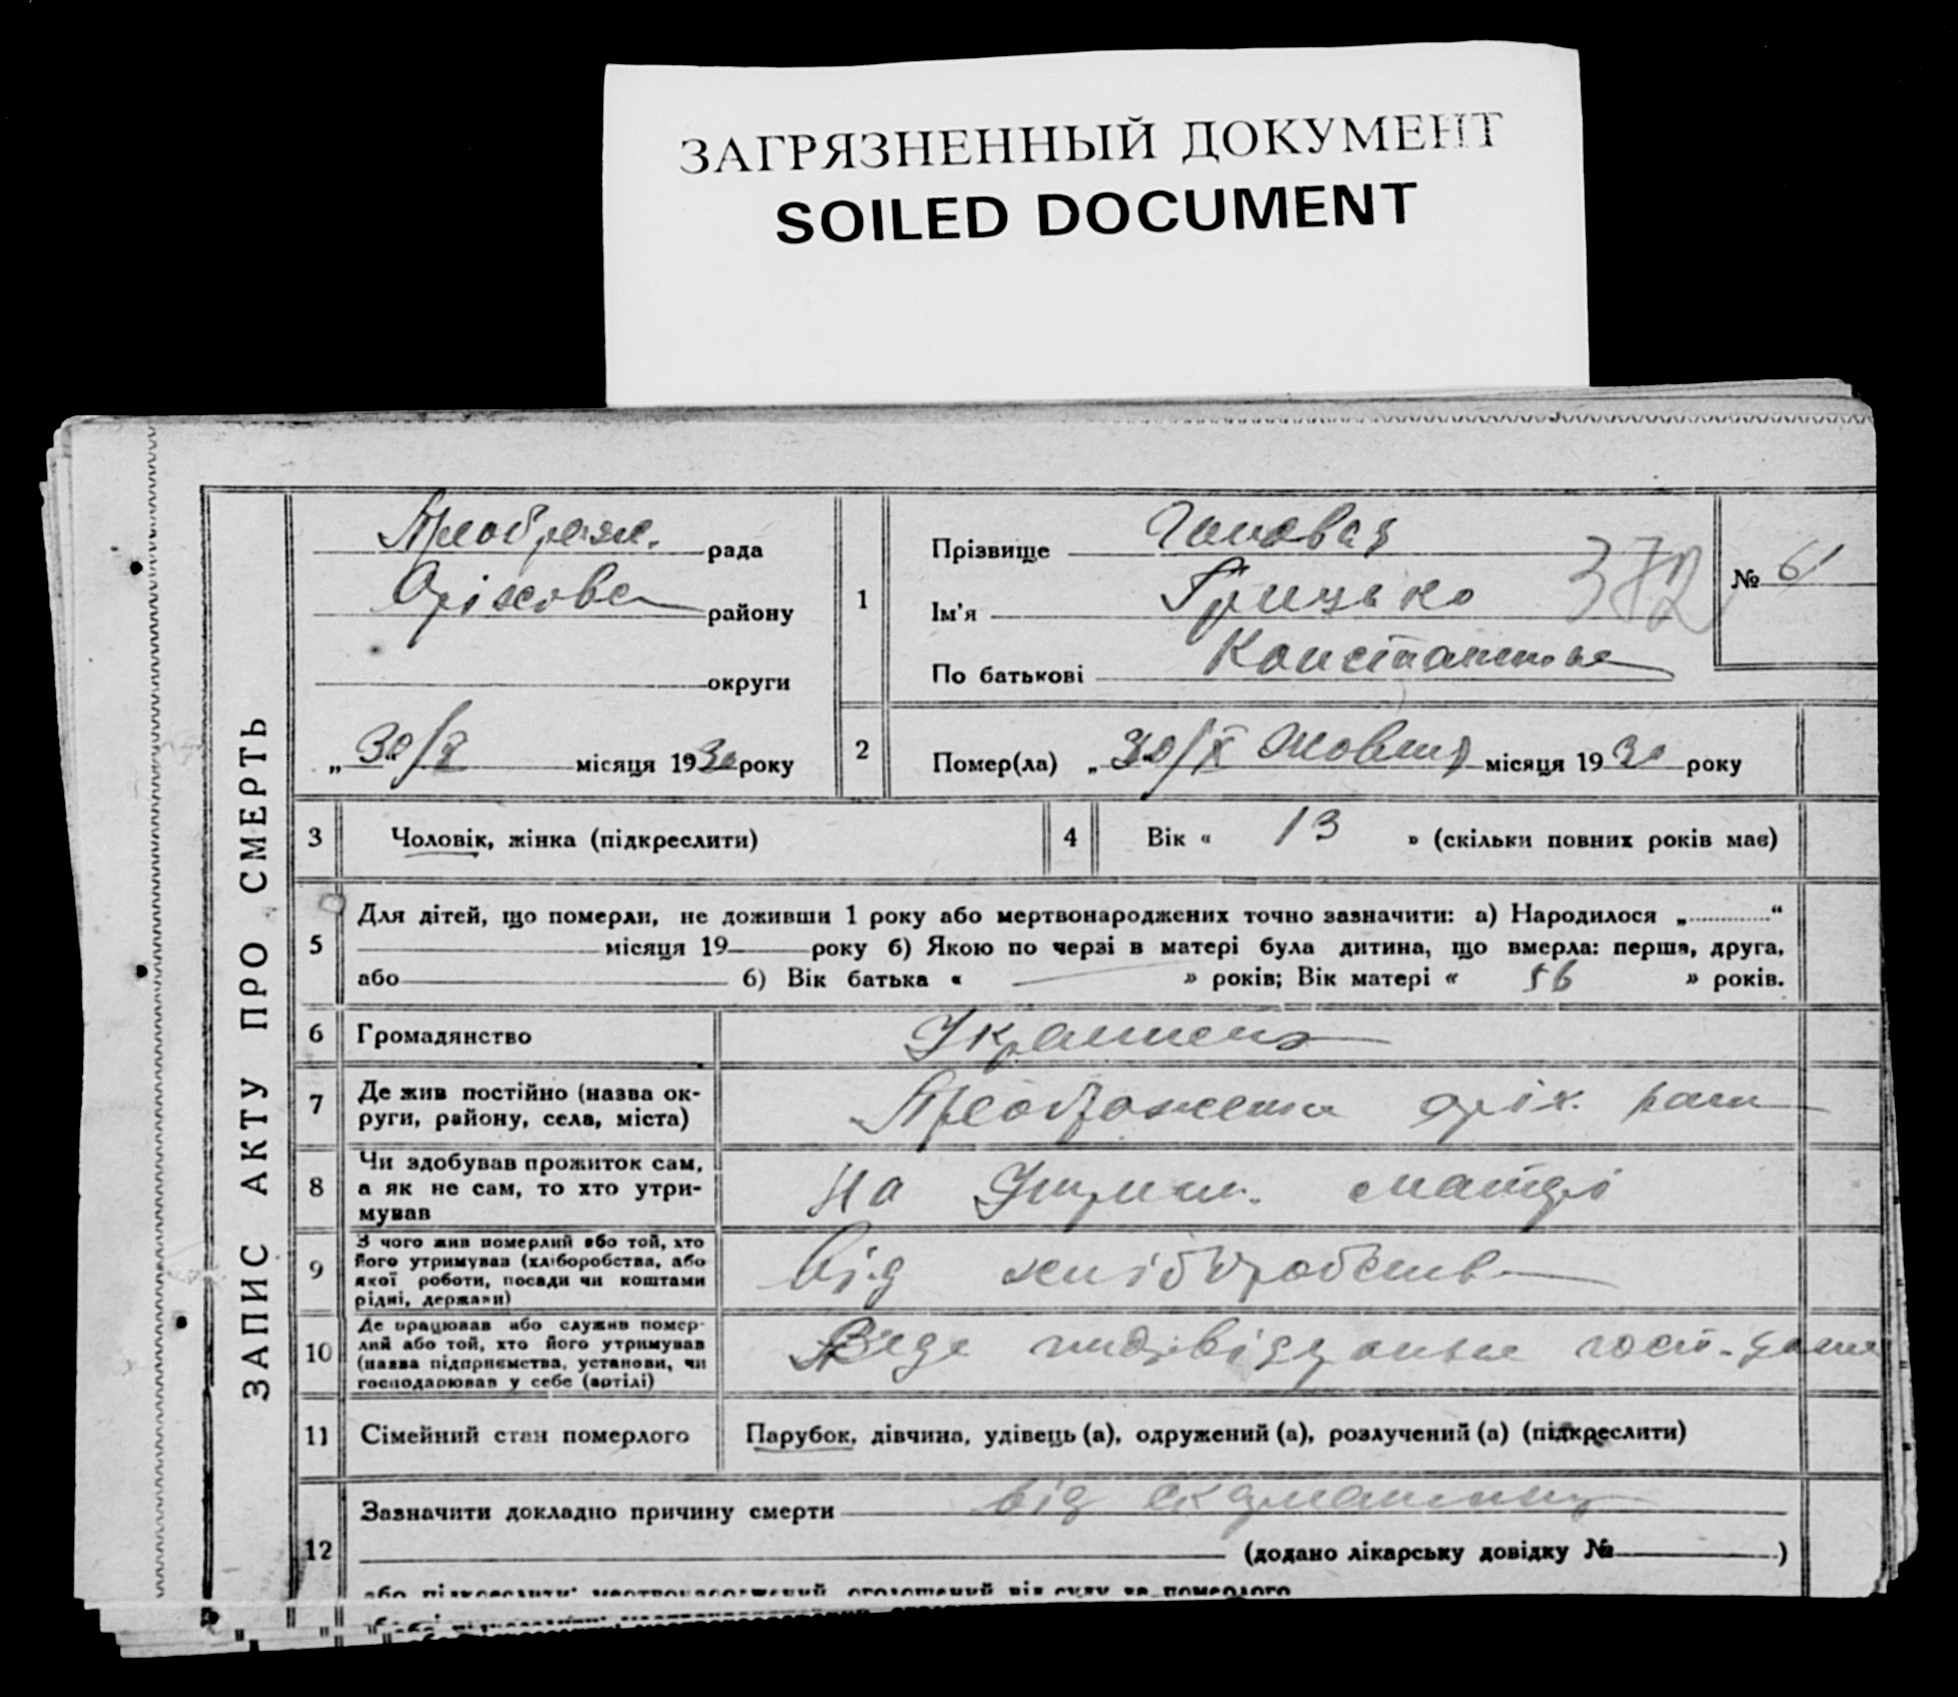 ЗАГРЯЗНЕННЫЙ ДОКУМЕНТ
SOILED DOCUMENT
ЗАПИС АКТУ ПРО СМЕРТЬ
Преображ. рада
Оріхове району
округи
„30/X місяця 1930 року
1
Прізвище
Ім'я Грицько
372
По батькові Константинов
№ 61
2
Помер(ла) „30/X Жовтня місяця 1930 року
3 Чоловік, жінка (підкреслити)
4 Вік « 13 » (скільки повних років має)
5
Для дітей, що померли, не доживши 1 року або мертвонароджених точно зазначити: а) Народилося „ “
місяця 19 року б) Якою по черзі в матері була дитина, що вмерла: перша, друга,
або б) Вік батька « — » років; Вік матері « 56 » років.
6 Громадянство Украинец
7
Де жив постійно (назва ок-
руги, району, села, міста)
Преображенка оріх. раион
8
Чи здобував прожиток сам,
а як не сам, то хто утри-
мував
На Утрим. матері
9
З чого жив померлий або той, хто
його утримував (хліборобства, або
якої роботи, посади чи коштами
рідні, держави)
Від хліборобства
10
Де працював або служив помер-
лий або той, хто його утримував
(назва підприємства, установи, чи
господарював у себе (артілі)
Веде індивідуальне госп-
11 Сімейний стан померлого
Парубок, дівчина, удівець (а), одружений (а), розлучений (а) (підкреслити)
12
Зазначити докладно причину смерти від скарлатини
(додано лікарську довідку № )
або підкреслити: мертвонароджений, оголошений від суду за померлого